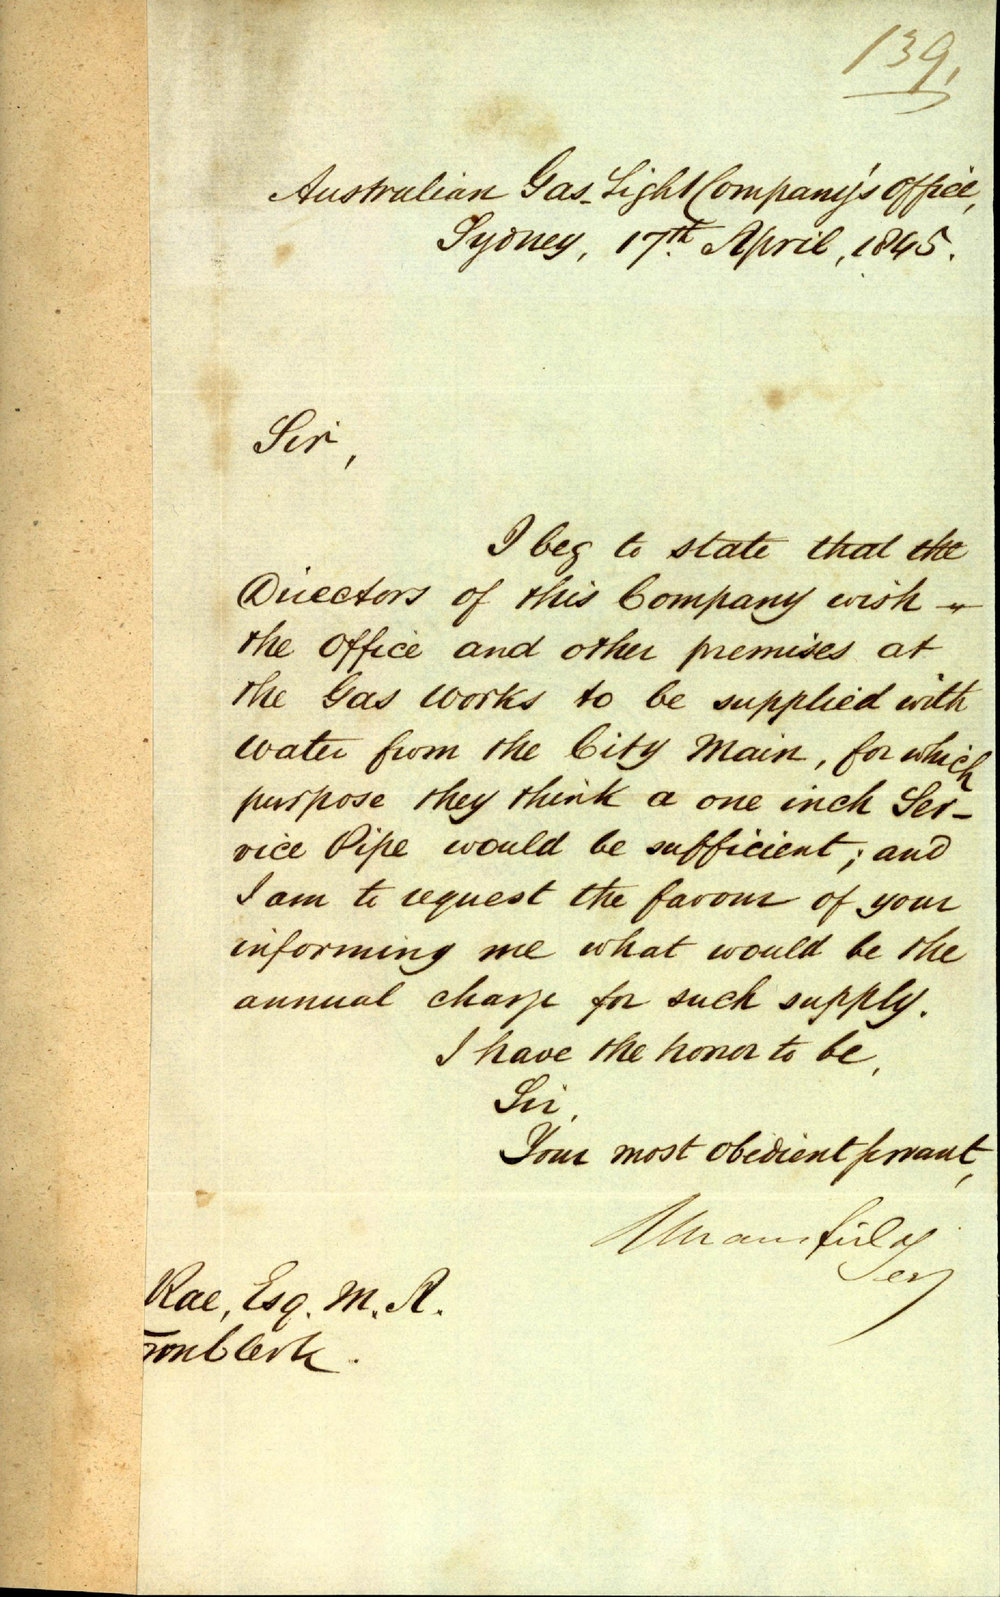 139,
Australian Gas-Light Company's Office,
Sydney, 17th April, 1845.
Sir,
I beg to state that the
Directors of this Company wish
the Office and other premises at
the Gas Works to be supplied with
Water from the City Main, for which
purpose they think a one inch Ser-
vice Pipe would be sufficient; and
I am to request the favour of your
informing me what would be the
annual charge for such supply.
I have the honor to be,
Sir,
Your most obedient servant,
Mansfield
Secy
Rae, Esq. M. A.
Clerk.